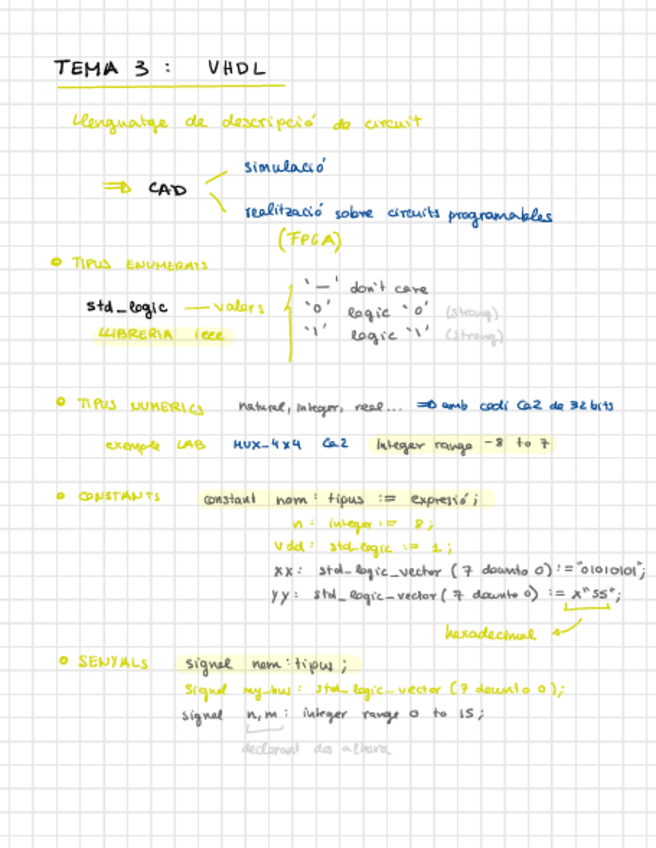 TEMA 3 : VHDL
Llenguatge de descripció de circuit
⇒ CAD
simulació
realització sobre circuits programables
(FPGA)
TIPUS ENUMERATS
std_logic — valors
'—' don't care
'0' logic '0' (strong)
'1' logic '1' (strong)
LLIBRERIA ieee
TIPUS NUMERICS natural, integer, real... ⇒ amb codi Ca2 de 32 bits
exemple LAB MUX_4x4 Ca2 Integer range -8 to 7
CONSTANTS constant nom : tipus := expresió;
n : integer := 8;
vdd : std_logic := 1;
xx : std_logic_vector (7 downto 0) := "01010101";
yy : std_logic_vector (7 downto 0) := x"55";
hexadecimal
SENYALS signal nom : tipus ;
Signal my_bus : std_logic_vector (7 downto 0);
signal n, m : integer range 0 to 15;
declarant dos alhora